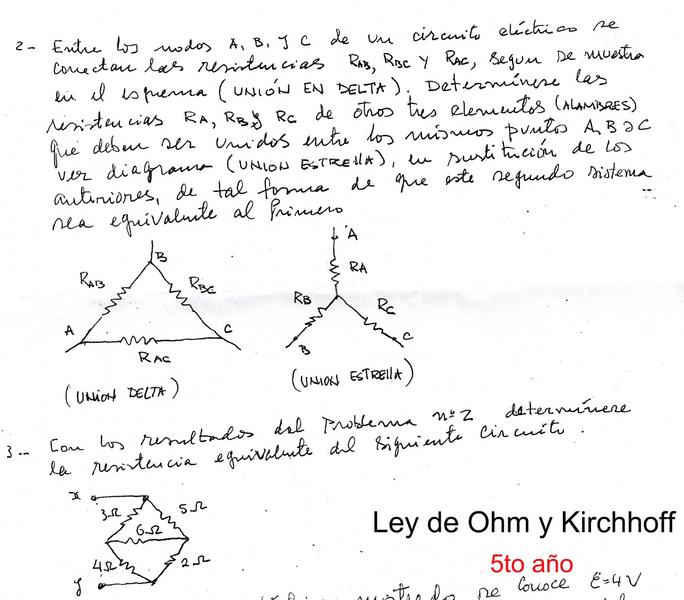 2- Entre los nodos A, B, y C de un circuito eléctrico se
conectan las resistencias RAB, RBC y RAC, segun se muestra
en el esquema (UNIÓN EN DELTA). Determínese las
resistencias RA, RB y RC de otros tres elementos (ALAMBRES)
que deben ser unidos entre los mismos puntos A, B y C
ver diagrama (UNION ESTRELLA), en sustitución de los
anteriores, de tal forma de que este segundo sistema
sea equivalente al Primero
B
RAB
RBC
A
C
RAC
(UNION DELTA)
A
RA
RB
RC
B
C
(UNION ESTRELLA)
3-- Con los resultados del Problema nº 2 determínese
la resistencia equivalente del siguiente circuito.
x
3Ω
5Ω
6Ω
4Ω
2Ω
y
Ley de Ohm y Kirchhoff
5to año
se conoce E=4V